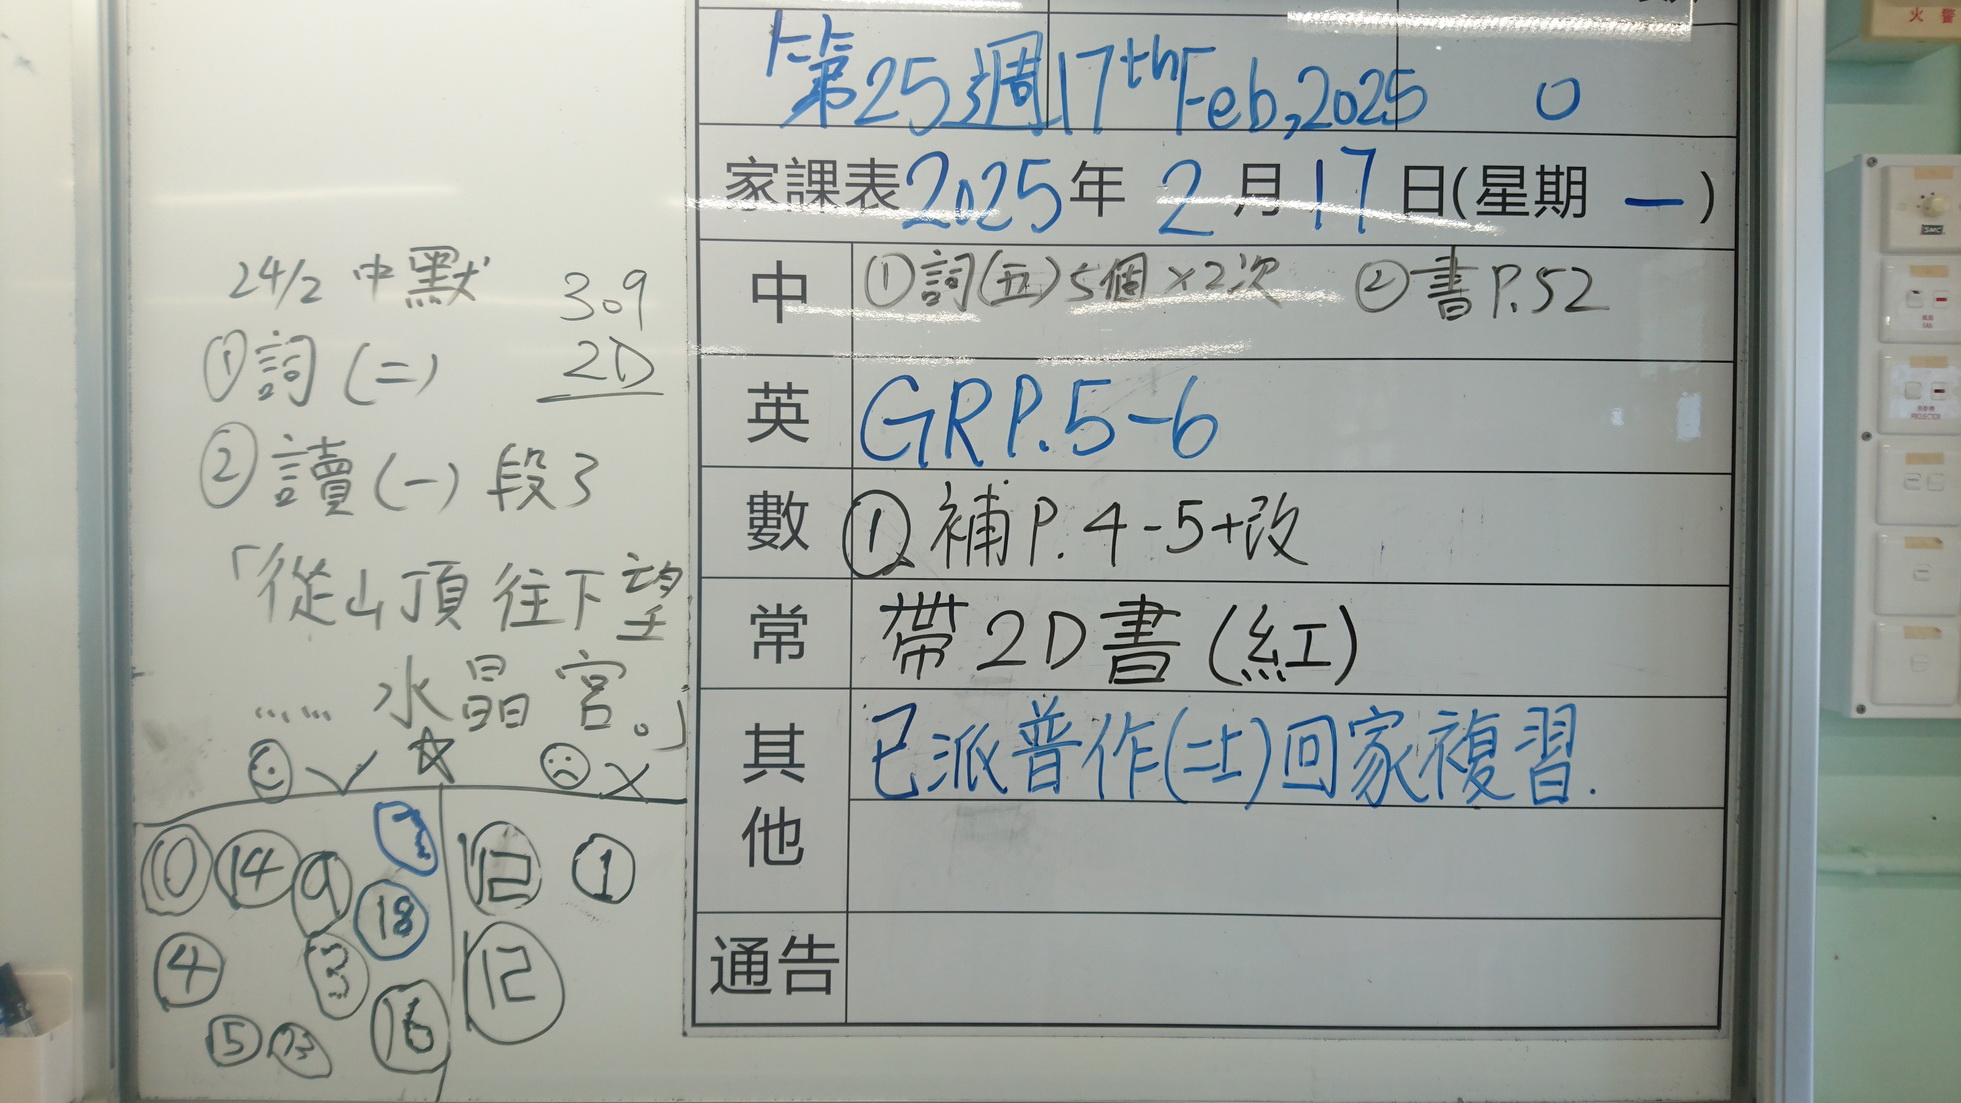 24/2 中默 309
①詞(二) 2D
②讀(一) 段3
「從山頂往下望
...... 水晶宮。」
✓ ☆ ✗
10 14 9
18
4 3 16
5
12 1
12
第25週 17th Feb, 2025 0
家課表 2025年 2月 17日(星期 一)
中 ①詞(五)5個×2次 ②書P.52
英 GR P.5-6
數 ① 補P.4-5+改
常 帶2D書(紅)
其他 已派普作(二上)回家複習.
通告
火警
SMC
FAN
PROJECTOR